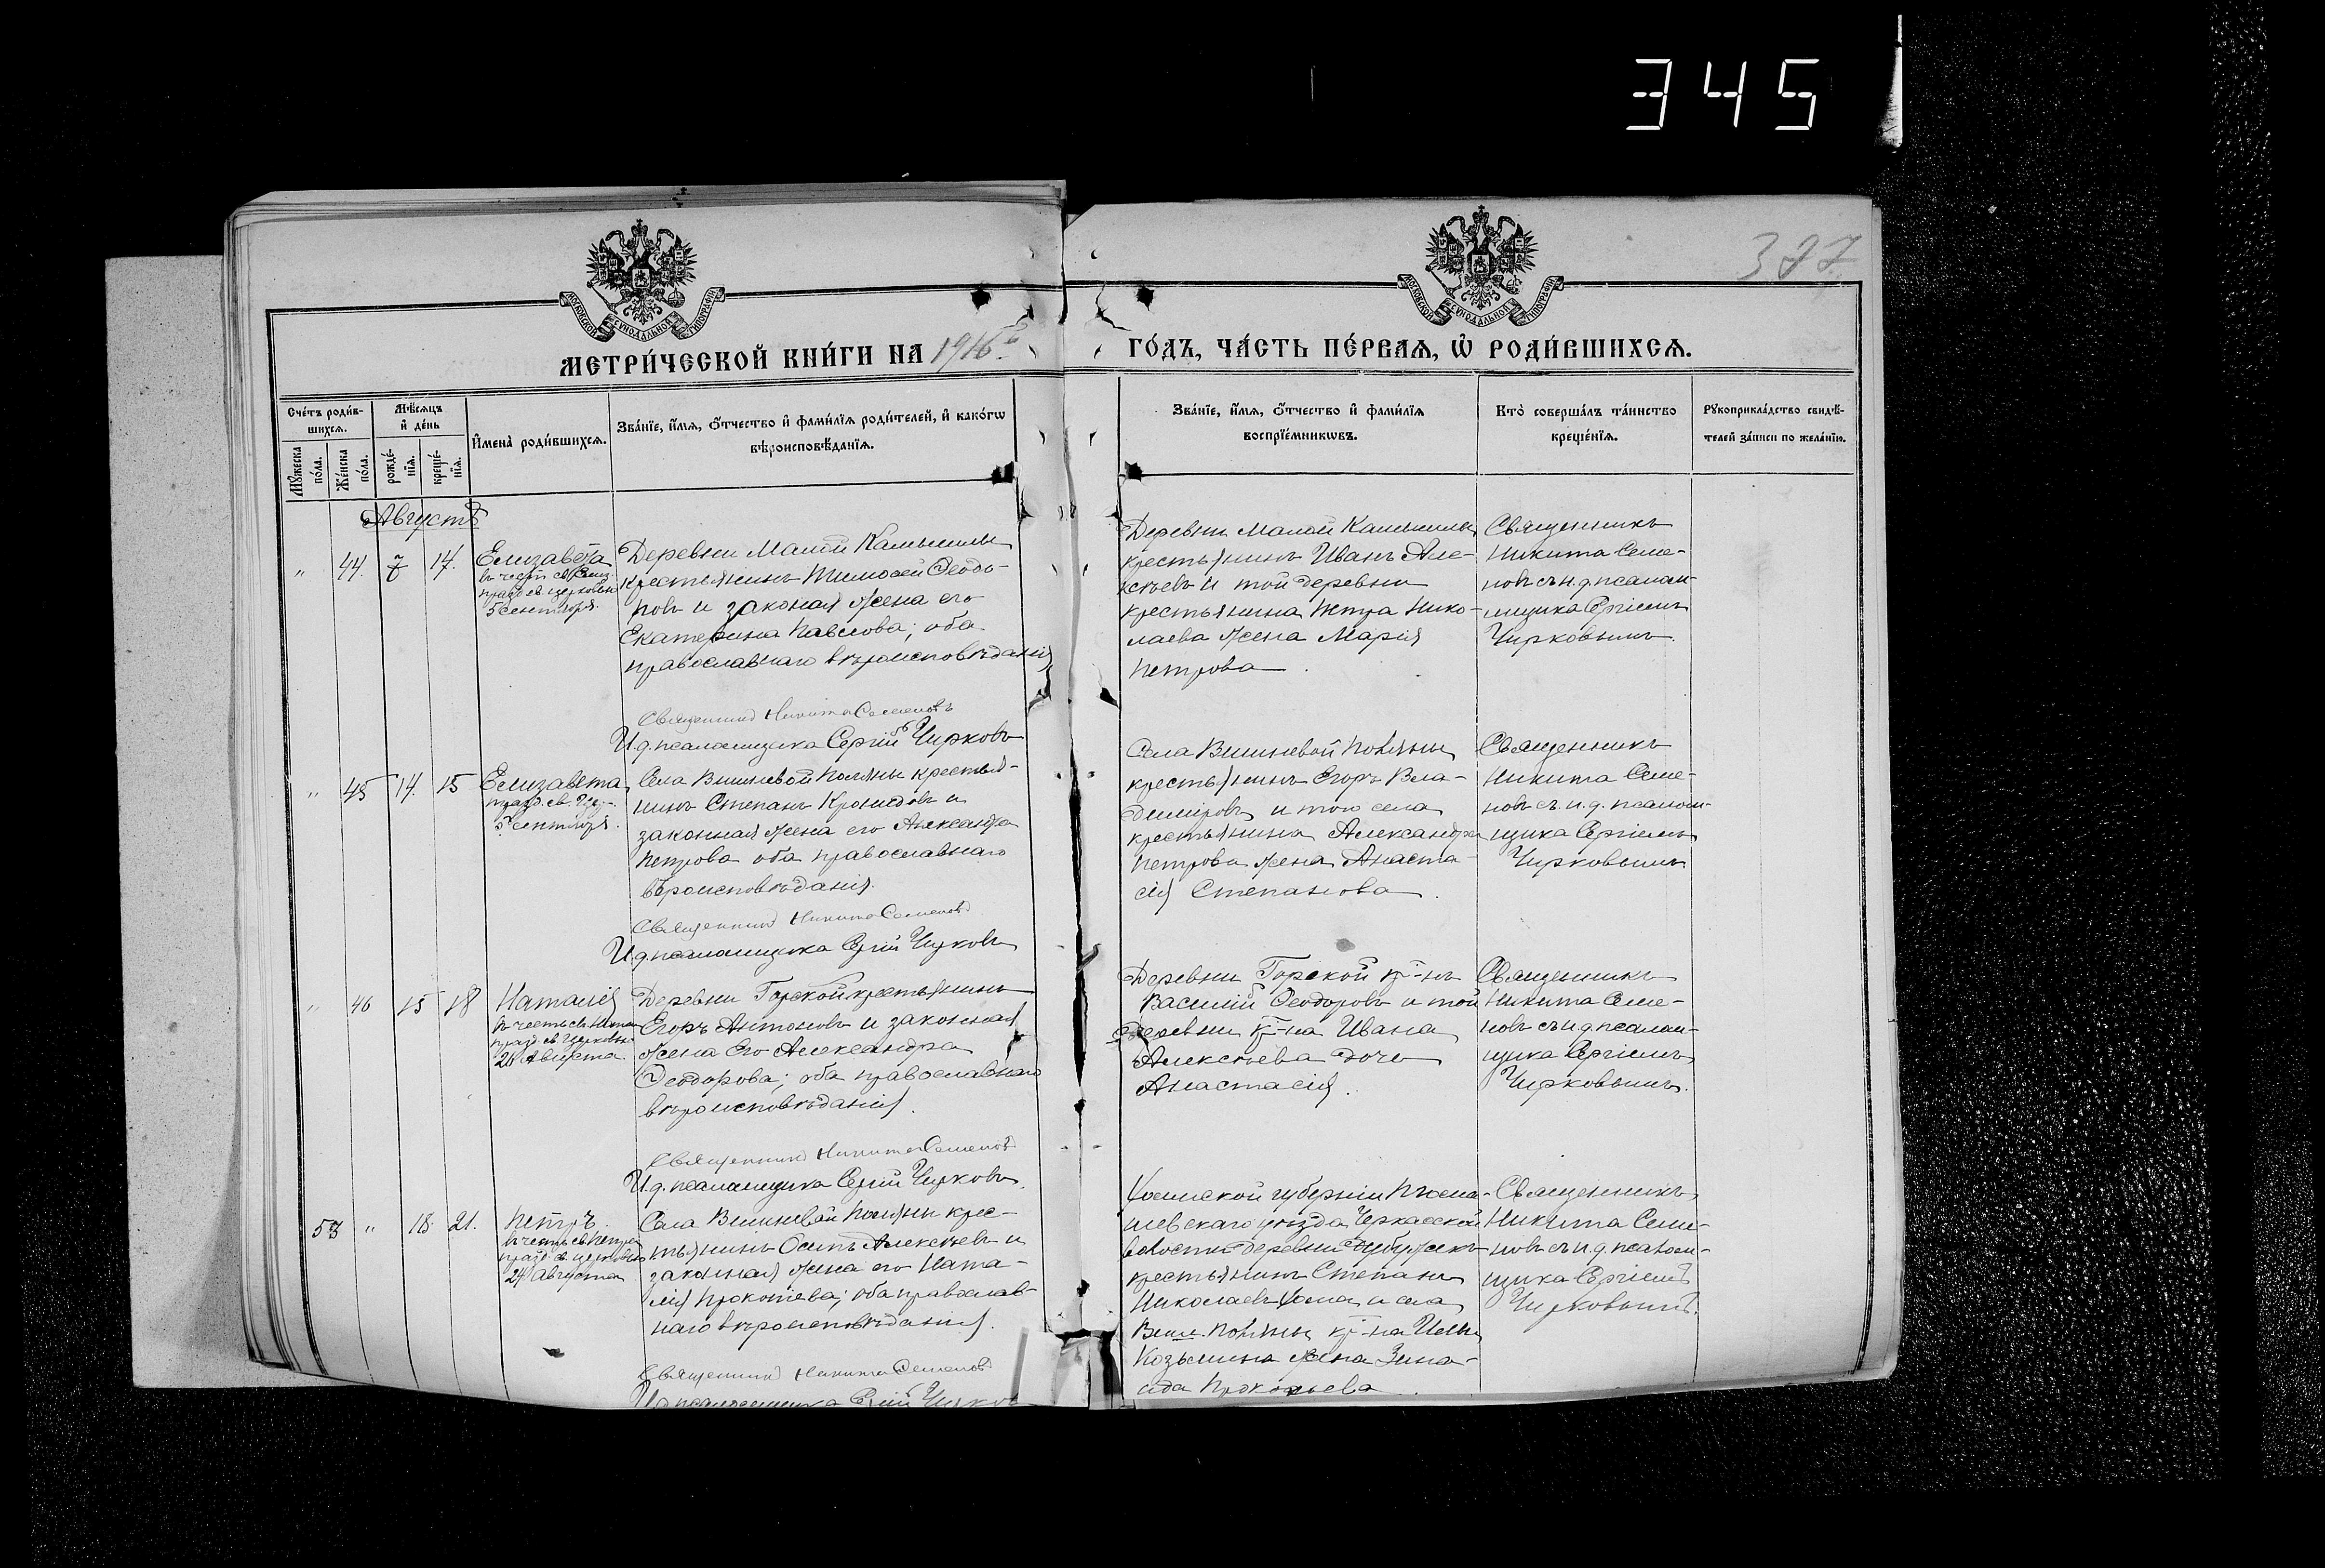 345
377
МОСКОВСКОЙ СѴНОДАЛЬНОЙ ТИПОГРАФІИ
МОСКОВСКОЙ СѴНОДАЛЬНОЙ ТИПОГРАФІИ
МЕТРИ́ЧЕСКОЙ КНИ́ГИ НА 1916й
ГО́ДЪ, ЧА́СТЬ ПЕ́РВАЯ, Ѽ РОДИ́ВШИХСЯ.
Сче́тъ роди́в-
шихся.
Мѣ́сяцъ
и҆ де́нь
Мꙋ́жеска
по́ла.
Же́нска
по́ла.
рожде́-
нїя.
креще́-
нїя.
И҆мена̀ роди́вшихся.
Зва́нїе, и҆́мя, ѻ҆́тчество и҆ фами́лїя роди́телей, и҆ како́гѡ
вѣроисповѣ́данїя.
Зва́нїе, и҆́мя, ѻ҆́тчество и҆ фами́лїя
воспрїе́мникѡвъ.
Кто̀ соверша́лъ та́инство
креще́нїя.
Рꙋкоприкла́дство свидѣ́-
телей за́писи по жела́нїю.
Августъ
" 44. 7 14. Елизавета
въ честь св. Елиз.
празд. св. церковью
5 сентября.
Деревни Малой Камышлы
крестьянинъ Тимофей Ѳеодо-
ровъ и законая жена его
Екатерина Павлова; оба
православнаго вѣроисповѣданія
Священникъ Никита Семеновъ
И.д. псаломщика Сергій Чирковъ
Деревни Малой Камышлы
крестьянинъ Иванъ Але-
ксѣевъ и той деревни
крестьянина Петра Нико-
лаева жена Марія
Петрова
Священникъ
Никита Семе-
новъ съ и.д. псалом-
щика Сергіемъ
Чирковымъ.
" 45 14. 15 Елизавета
празд. св. Цер.
5 сентября.
Села Вишневой Поляны крестья-
нинъ Степанъ Кронидовъ и
законная жена его Александра
Петрова оба православнаго
вѣроисповѣданія.
Священникъ Никита Семеновъ
И.д. псаломщика Сергій Чирковъ
Села Вишневой Поляны
крестьянинъ Егоръ Вла-
димировъ и того села
крестьянина Александра
Петрова жена Анаста-
сія Степанова.
Священникъ
Никита Семе-
новъ съ и.д. псалом-
щика Сергіемъ
Чирковымъ
" 46 15 18 Наталія
въ честь св. Ната.
празд. св. Церковью
26 Августа.
Деревни Горской крестьянинъ
Егоръ Антоновъ и законная
жена Его Александра
Ѳеодорова; оба православнаго
вѣроисповѣданія.
Священникъ Никита Семеновъ
И.д. псаломщика Сергій Чирковъ.
Деревни Горской кр-нъ
Василій Ѳеодоровъ и той
деревни кр-на Ивана
Алексѣева дочь
Анастасія.
Священникъ
Никита Семе-
новъ съ и.д. псалом-
щика Сергіемъ
Чирковымъ.
53 " 18. 21. Петръ.
въ честь св. Петра
празд. св. церковью
24 Августа
Села Вишневой Поляны крес-
тьянинъ Осипъ Алексѣевъ и
законная жена его Ната-
лія Прокопіева; оба православ-
наго вѣроисповѣданія.
Священникъ Никита Семеновъ
И.д. псаломщика Сергій Чирковъ
губерніи
уѣзда Черкасской
волости деревни
крестьянинъ Степанъ
Николаевъ и села
Виш. Поляны кр-на Ильи
Козьмина жена Зина-
ида Прокопьева.
Священникъ
Никита Семе-
новъ съ и.д. псалом-
щика Сергіемъ
Чирковымъ.